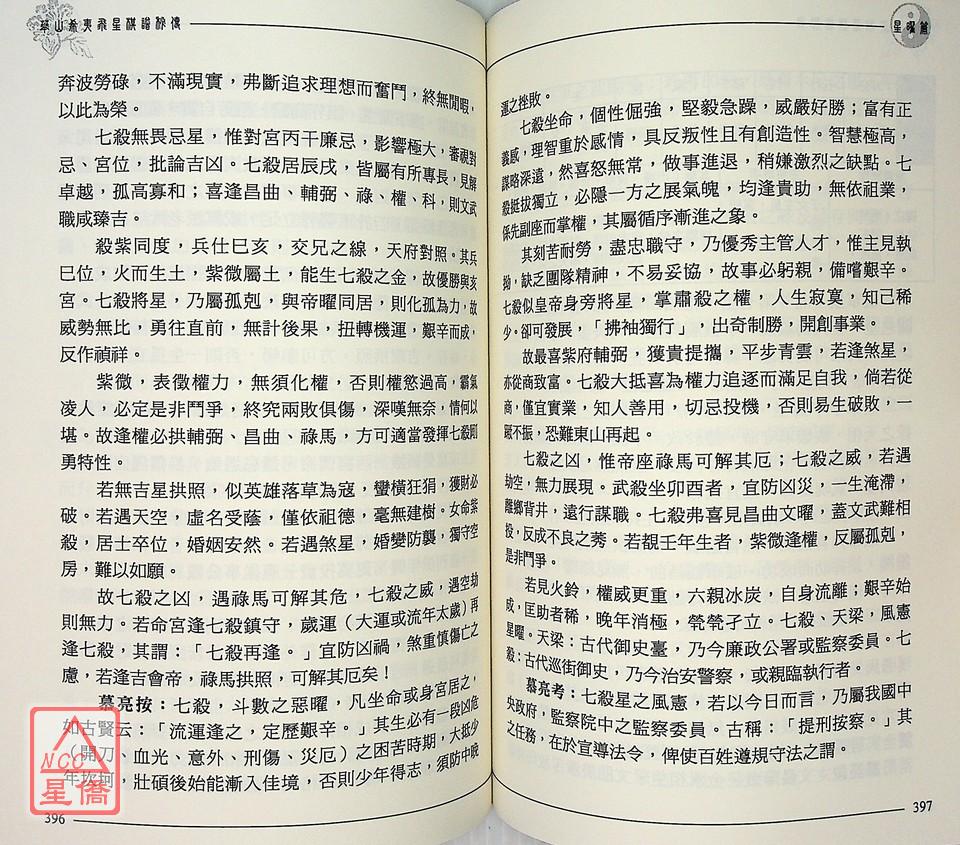 華山希夷飛星棋譜秘傳
奔波勞碌，不滿現實，弗斷追求理想而奮鬥，終無閒暇，
以此為榮。
七殺無畏忌星，惟對宮丙干廉忌，影響極大，審視對
忌、宮位，批論吉凶。七殺居辰戌，皆屬有所專長，見解
卓越，孤高寡和；喜逢昌曲、輔弼、祿、權、科，則文武
職咸臻吉。
殺紫同度，兵仕巳亥，交兄之線，天府對照。其兵
巳位，火而生土，紫微屬土，能生七殺之金，故優勝與亥
宮。七殺將星，乃屬孤剋，與帝曜同居，則化孤為力，故
威勢無比，勇往直前，無計後果，扭轉機運，艱辛而成，
反作禎祥。
紫微，表徵權力，無須化權，否則權慾過高，霸氣
凌人，必定是非鬥爭，終究兩敗俱傷，深嘆無奈，情何以
堪。故逢權必拱輔弼、昌曲、祿馬，方可適當發揮七殺剛
勇特性。
若無吉星拱照，似英雄落草為寇，蠻橫狂狷，獲財必
破。若遇天空，虛名受蔭，僅依祖德，毫無建樹。女命紫
殺，居士卒位，婚姻安然。若遇煞星，婚變防襲，獨守空
房，難以如願。
故七殺之凶，遇祿馬可解其危，七殺之威，遇空劫
則無力。若命宮逢七殺鎮守，歲運（大運或流年太歲）再
逢七殺，其謂：「七殺再逢。」宜防凶禍，煞重慎傷亡之
慮，若逢吉會帝，祿馬拱照，可解其厄矣！
慕亮按：七殺，斗數之惡曜，凡坐命或身宮居之，
如古賢云：「流運逢之，定歷艱辛。」其生必有一段凶危
（開刀、血光、意外、刑傷、災厄）之困苦時期，大抵少
年坎坷，壯碩後始能漸入佳境，否則少年得志，須防中晚
NCC
星僑
396
星曜篇
運之挫敗。
七殺坐命，個性倔強，堅毅急躁，威嚴好勝；富有正
義感，理智重於感情，具反叛性且有創造性。智慧極高，
謀略深遠，然喜怒無常，做事進退，稍嫌激烈之缺點。七
殺挺拔獨立，必隱一方之展氣魄，均逢貴助，無依祖業，
係先副座而掌權，其屬循序漸進之象。
其刻苦耐勞，盡忠職守，乃優秀主管人才，惟主見執
拗，缺乏團隊精神，不易妥協，故事必躬親，備嚐艱辛。
七殺似皇帝身旁將星，掌肅殺之權，人生寂寞，知己稀
少。卻可發展，「拂袖獨行」，出奇制勝，開創事業。
故最喜紫府輔弼，獲貴提攜，平步青雲，若逢煞星，
亦從商致富。七殺大抵喜為權力追逐而滿足自我，倘若從
商，僅宜實業，知人善用，切忌投機，否則易生破敗，一
蹶不振，恐難東山再起。
七殺之凶，惟帝座祿馬可解其厄；七殺之威，若遇
劫空，無力展現。武殺坐卯酉者，宜防凶災，一生淹滯，
離鄉背井，遠行謀職。七殺弗喜見昌曲文曜，蓋文武難相
投，反成不良之莠。若覩壬年生者，紫微逢權，反屬孤剋，
是非鬥爭。
若見火鈴，權威更重，六親冰炭，自身流離；艱辛始
成，匡助者稀，晚年消極，煢煢孑立。七殺、天梁，風憲
星曜。天梁：古代御史臺，乃今廉政公署或監察委員。七
殺：古代巡街御史，乃今治安警察，或親臨執行者。
慕亮考：七殺星之風憲，若以今日而言，乃屬我國中
央政府，監察院中之監察委員。古稱：「提刑按察。」其
之任務，在於宣導法令，俾使百姓遵規守法之謂。
397